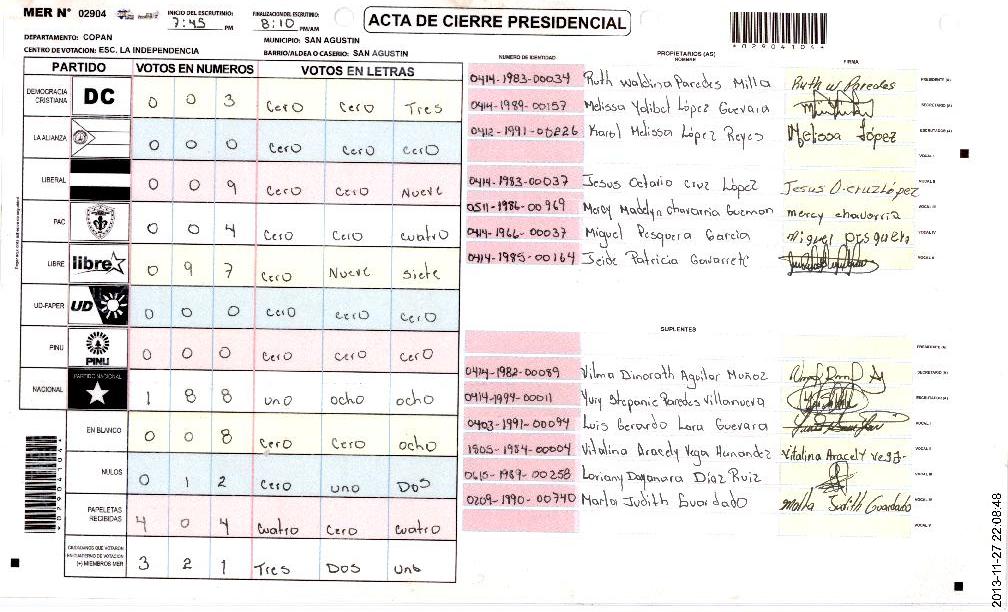 MER N° 02904
INICIO DEL ESCRUTINIO: 7:45 PM
FINALIZACION DEL ESCRUTINIO: 8:10 PM/AM
ACTA DE CIERRE PRESIDENCIAL
*029041041*
DEPARTAMENTO: COPAN
MUNICIPIO: SAN AGUSTIN
CENTRO DE VOTACION: ESC. LA INDEPENDENCIA
BARRIO/ALDEA O CASERIO: SAN AGUSTIN
PARTIDO VOTOS EN NUMEROS VOTOS EN LETRAS
DEMOCRACIA CRISTIANA DC 0 0 3 cero cero Tres
LA ALIANZA 0 0 0 cero cero cero
LIBERAL 0 0 9 cero cero Nueve
PAC 0 0 4 cero cero cuatro
LIBRE libre 0 9 7 cero Nueve siete
UD-FAPER UD 0 0 0 cero cero cero
PINU PINU 0 0 0 cero cero cero
NACIONAL PARTIDO NACIONAL 1 8 8 uno ocho ocho
EN BLANCO 0 0 8 cero cero ocho
NULOS 0 1 2 cero uno Dos
PAPELETAS RECIBIDAS 4 0 4 cuatro cero cuatro
CIUDADANOS QUE VOTARON EN CUADERNO DE VOTACION (+) MIEMBROS MER 3 2 1 Tres Dos uno
NUMERO DE IDENTIDAD PROPIETARIOS (AS) NOMBRE FIRMA
0414-1983-00034 Ruth Waldina Paredes Milla Ruth W Paredes PRESIDENTE (A)
0414-1989-00157 Melissa Yolibet López Guevara SECRETARIO (A)
0412-1991-00226 Karol Melissa López Reyes Melissa López ESCRUTADOR (A)
VOCAL I
0414-1983-00037 Jesus Octavio Cruz López Jesus O. Cruz López VOCAL II
0511-1986-00969 Mercy Madelyn chavarria Guzman mercy chavarria VOCAL III
0414-1966-00037 Miguel Pesquera Garcia miguel pesquera VOCAL IV
0414-1985-00164 Jeide Patricia Gavarrete VOCAL V
SUPLENTES
PRESIDENTE (A)
0414-1982-00089 Vilma Dinorath Aguilar Muñoz SECRETARIO (A)
0414-1994-00011 Yury Stepanie Paredes Villanueva ESCRUTADOR (A)
0403-1991-00094 Luis Gerardo Lara Guevara VOCAL I
1805-1984-00004 Vitalina Aracely Vega Hernandez Vitalina Aracely Vega VOCAL II
0615-1989-00258 Loriany Dayanara Díaz Ruiz VOCAL III
0209-1990-00740 Marta Judith Guardado Marta Judith Guardado VOCAL IV
VOCAL V
2013-11-27 22:08:48